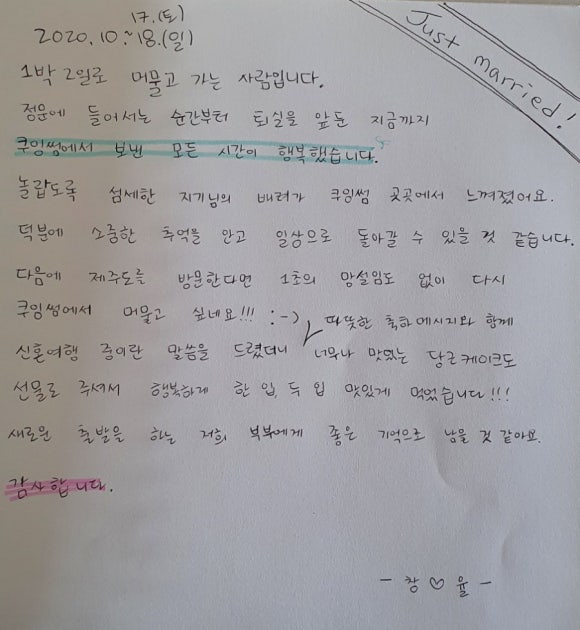 17.(토)
2020.10.~18.(일)
Just married!
1박 2일로 머물고 가는 사람입니다.
정문에 들어서는 순간부터 퇴실을 앞둔 지금까지
쿠잉썸에서 보낸 모든 시간이 행복했습니다.
놀랍도록 섬세한 지기님의 배려가 쿠잉썸 곳곳에서 느껴졌어요.
덕분에 소중한 추억을 안고 일상으로 돌아갈 수 있을 것 같습니다.
다음에 제주도를 방문한다면 1초의 망설임도 없이 다시
쿠잉썸에서 머물고 싶네요!!! :-)
따뜻한 축하메시지와 함께
신혼여행 중이란 말씀을 드렸더니 너무나 맛있는 당근케이크도
선물로 주셔서 행복하게 한 입, 두 입 맛있게 먹었습니다!!!
새로운 출발을 하는 저희 부부에게 좋은 기억으로 남을 것 같아요.
감사합니다.
- 창♡율 -